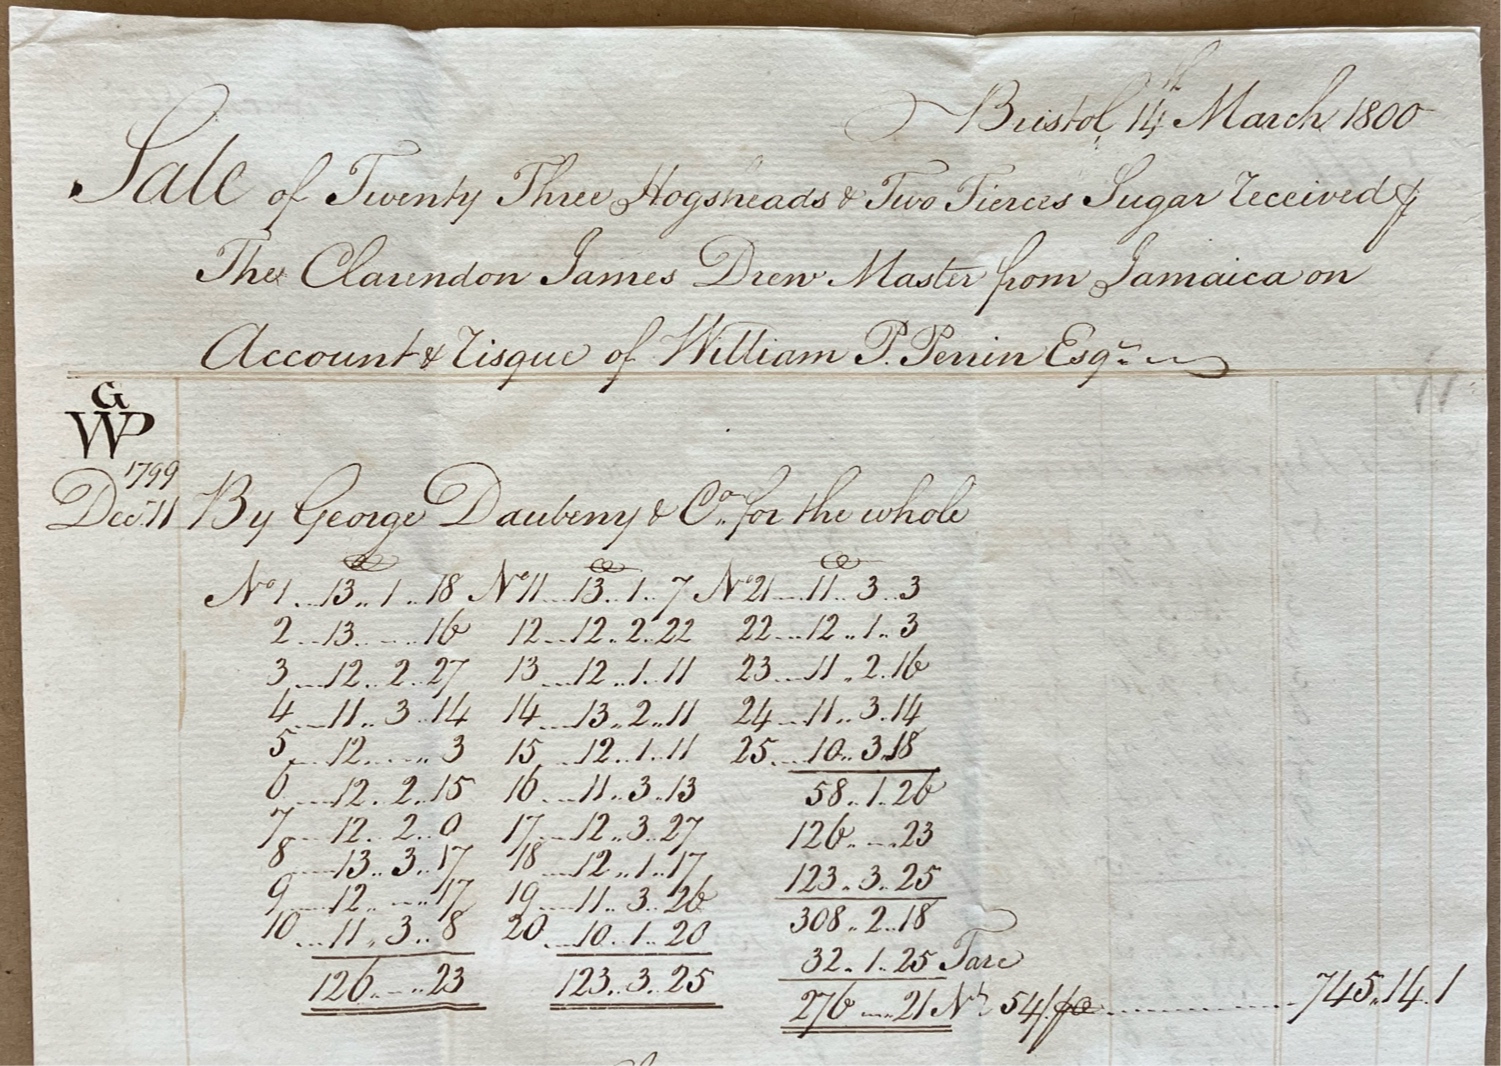 Bristol, 14th March 1800
Sale of Twenty Three Hogsheads & Two Tierces Sugar received ⅌
The Clarendon James Drew Master from Jamaica on
Account & risque of William P. Perrin Esqr
G
WP
1799
Decr 11 By George Daubeny & Co. for the whole
No 1 .. 13 .. 1 .. 18 No 11 .. 13 .. 1 .. 7 No 21 .. 11 .. 3 .. 3
2 .. 13 .. .. 16 12 .. 12 .. 2 .. 22 22 .. 12 .. 1 .. 3
3 .. 12 .. 2 .. 27 13 .. 12 .. 1 .. 11 23 .. 11 .. 2 .. 16
4 .. 11 .. 3 .. 14 14 .. 13 .. 2 .. 11 24 .. 11 .. 3 .. 14
5 .. 12 .. .. 3 15 .. 12 .. 1 .. 11 25 .. 10 .. 3 .. 18
6 .. 12 .. 2 .. 15 16 .. 11 .. 3 .. 13 58 .. 1 .. 26
7 .. 12 .. 2 .. 0 17 .. 12 .. 3 .. 27 126 .. .. 23
8 .. 13 .. 3 .. 17 18 .. 12 .. 1 .. 17 123 .. 3 .. 25
9 .. 12 .. .. 17 19 .. 11 .. 3 .. 26 308 .. 2 .. 18
10 .. 11 .. 3 .. 8 20 .. 10 .. 1 .. 20 32 .. 1 .. 25 Tare
126 .. .. 23 123 .. 3 .. 25 276 .. .. 21 Nt 54/ ⅌ 745 .. 14 .. 1